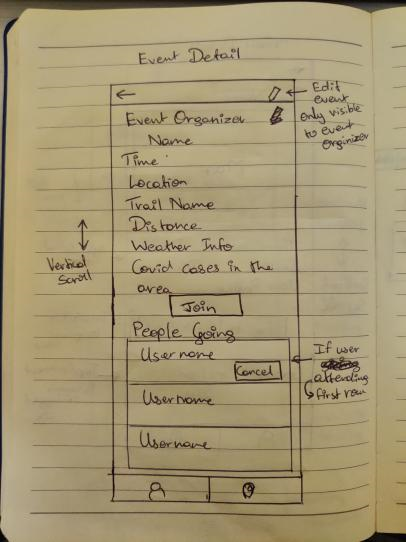 Event Detail
←
Edit
event
only visible
to event
orginizer
Event Organizer
Name
Time
Location
Trail Name
Distance
Weather Info
Covid cases in the
area
Vertical
Scroll
Join
People Going
Username
Cancel
Username
Username
If user
attending
first row